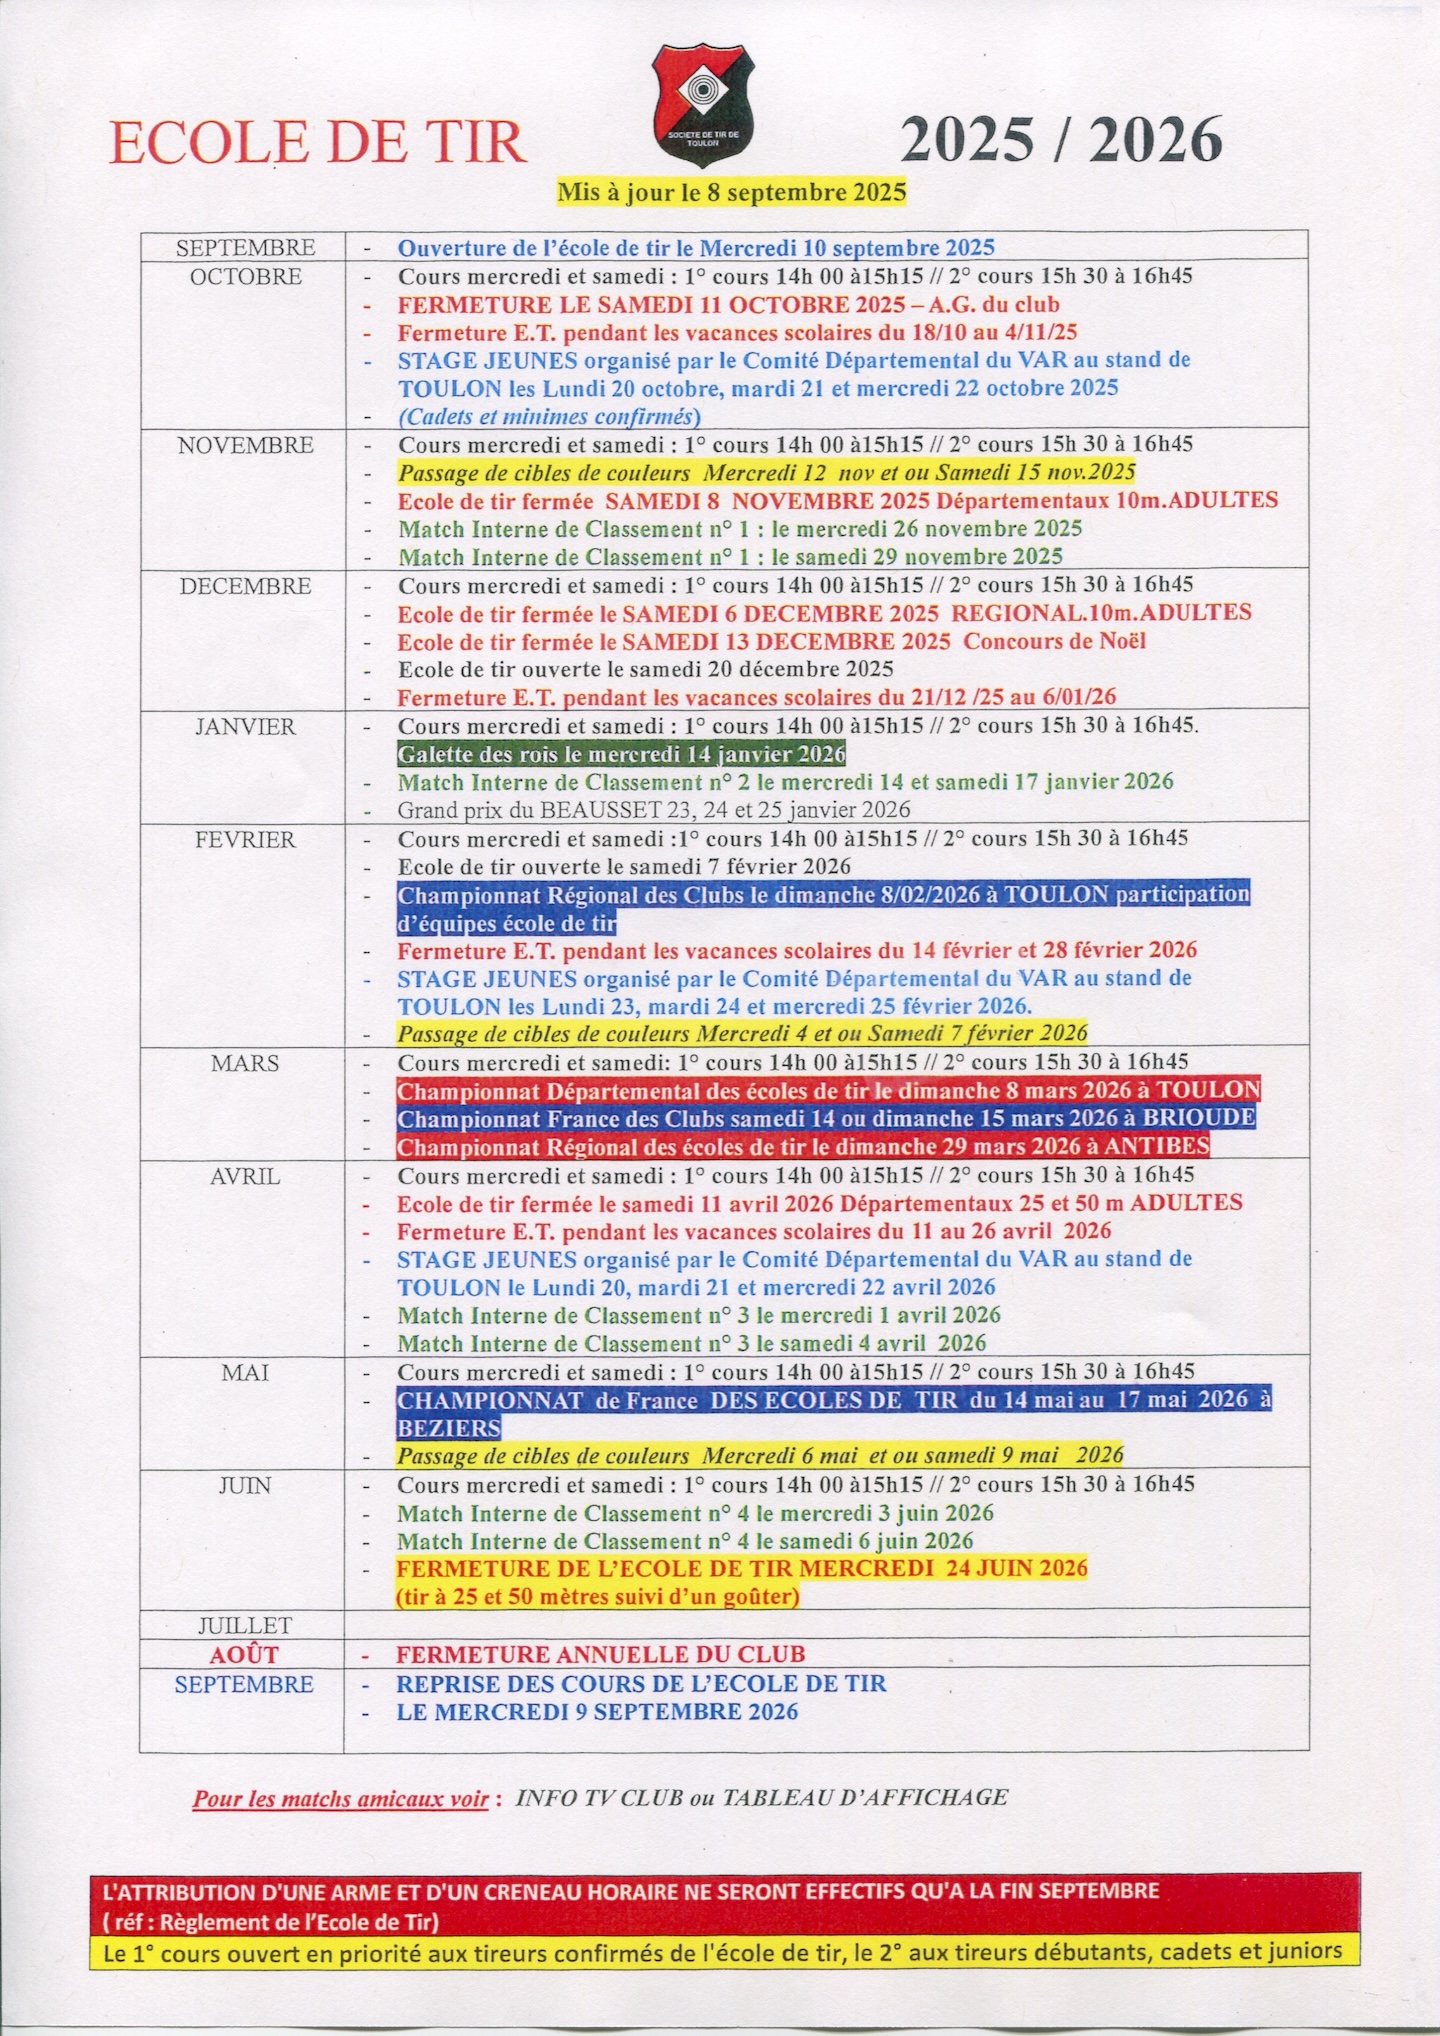 SOCIETE DE TIR DE
TOULON
ECOLE DE TIR 2025 / 2026
Mis à jour le 8 septembre 2025
SEPTEMBRE - Ouverture de l'école de tir le Mercredi 10 septembre 2025
OCTOBRE - Cours mercredi et samedi : 1° cours 14h 00 à15h15 // 2° cours 15h 30 à 16h45
- FERMETURE LE SAMEDI 11 OCTOBRE 2025 – A.G. du club
- Fermeture E.T. pendant les vacances scolaires du 18/10 au 4/11/25
- STAGE JEUNES organisé par le Comité Départemental du VAR au stand de
TOULON les Lundi 20 octobre, mardi 21 et mercredi 22 octobre 2025
- (Cadets et minimes confirmés)
NOVEMBRE - Cours mercredi et samedi : 1° cours 14h 00 à15h15 // 2° cours 15h 30 à 16h45
- Passage de cibles de couleurs Mercredi 12 nov et ou Samedi 15 nov.2025
- Ecole de tir fermée SAMEDI 8 NOVEMBRE 2025 Départementaux 10m.ADULTES
- Match Interne de Classement n° 1 : le mercredi 26 novembre 2025
- Match Interne de Classement n° 1 : le samedi 29 novembre 2025
DECEMBRE - Cours mercredi et samedi : 1° cours 14h 00 à15h15 // 2° cours 15h 30 à 16h45
- Ecole de tir fermée le SAMEDI 6 DECEMBRE 2025 REGIONAL.10m.ADULTES
- Ecole de tir fermée le SAMEDI 13 DECEMBRE 2025 Concours de Noël
- Ecole de tir ouverte le samedi 20 décembre 2025
- Fermeture E.T. pendant les vacances scolaires du 21/12 /25 au 6/01/26
JANVIER - Cours mercredi et samedi : 1° cours 14h 00 à15h15 // 2° cours 15h 30 à 16h45.
- Galette des rois le mercredi 14 janvier 2026
- Match Interne de Classement n° 2 le mercredi 14 et samedi 17 janvier 2026
- Grand prix du BEAUSSET 23, 24 et 25 janvier 2026
FEVRIER - Cours mercredi et samedi :1° cours 14h 00 à15h15 // 2° cours 15h 30 à 16h45
- Ecole de tir ouverte le samedi 7 février 2026
- Championnat Régional des Clubs le dimanche 8/02/2026 à TOULON participation
d'équipes école de tir
- Fermeture E.T. pendant les vacances scolaires du 14 février et 28 février 2026
- STAGE JEUNES organisé par le Comité Départemental du VAR au stand de
TOULON les Lundi 23, mardi 24 et mercredi 25 février 2026.
- Passage de cibles de couleurs Mercredi 4 et ou Samedi 7 février 2026
MARS - Cours mercredi et samedi: 1° cours 14h 00 à15h15 // 2° cours 15h 30 à 16h45
- Championnat Départemental des écoles de tir le dimanche 8 mars 2026 à TOULON
- Championnat France des Clubs samedi 14 ou dimanche 15 mars 2026 à BRIOUDE
- Championnat Régional des écoles de tir le dimanche 29 mars 2026 à ANTIBES
AVRIL - Cours mercredi et samedi : 1° cours 14h 00 à15h15 // 2° cours 15h 30 à 16h45
- Ecole de tir fermée le samedi 11 avril 2026 Départementaux 25 et 50 m ADULTES
- Fermeture E.T. pendant les vacances scolaires du 11 au 26 avril 2026
- STAGE JEUNES organisé par le Comité Départemental du VAR au stand de
TOULON le Lundi 20, mardi 21 et mercredi 22 avril 2026
- Match Interne de Classement n° 3 le mercredi 1 avril 2026
- Match Interne de Classement n° 3 le samedi 4 avril 2026
MAI - Cours mercredi et samedi : 1° cours 14h 00 à15h15 // 2° cours 15h 30 à 16h45
- CHAMPIONNAT de France DES ECOLES DE TIR du 14 mai au 17 mai 2026 à
BEZIERS
- Passage de cibles de couleurs Mercredi 6 mai et ou samedi 9 mai 2026
JUIN - Cours mercredi et samedi : 1° cours 14h 00 à15h15 // 2° cours 15h 30 à 16h45
- Match Interne de Classement n° 4 le mercredi 3 juin 2026
- Match Interne de Classement n° 4 le samedi 6 juin 2026
- FERMETURE DE L'ECOLE DE TIR MERCREDI 24 JUIN 2026
(tir à 25 et 50 mètres suivi d'un goûter)
JUILLET
AOÛT - FERMETURE ANNUELLE DU CLUB
SEPTEMBRE - REPRISE DES COURS DE L'ECOLE DE TIR
- LE MERCREDI 9 SEPTEMBRE 2026
Pour les matchs amicaux voir : INFO TV CLUB ou TABLEAU D'AFFICHAGE
L'ATTRIBUTION D'UNE ARME ET D'UN CRENEAU HORAIRE NE SERONT EFFECTIFS QU'A LA FIN SEPTEMBRE
( réf : Règlement de l'Ecole de Tir)
Le 1° cours ouvert en priorité aux tireurs confirmés de l'école de tir, le 2° aux tireurs débutants, cadets et juniors